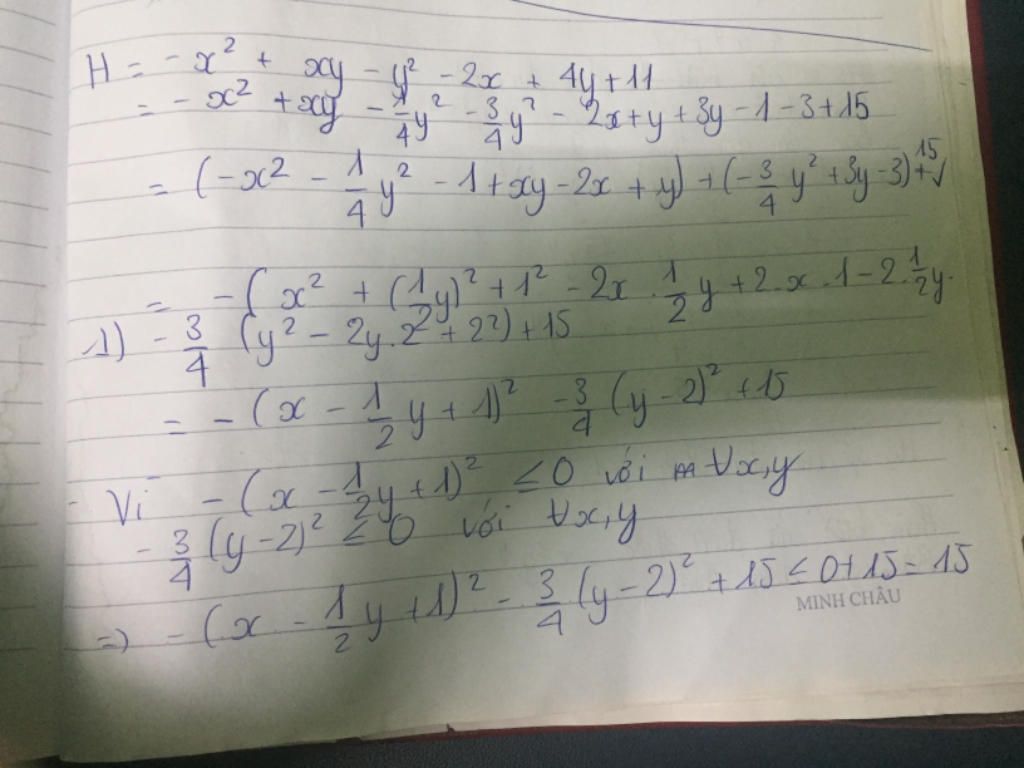 H = - x² + xy - y² - 2x + 4y + 11
= - x² + xy - 1/4 y² - 3/4 y² - 2x + y + 3y - 1 - 3 + 15
= (-x² - 1/4 y² - 1 + xy - 2x + y) + (-3/4 y² + 3y - 3) + 15
= - (x² + (1/2 y)² + 1² - 2x . 1/2 y + 2 . x . 1 - 2 . 1/2 y .
1) - 3/4 (y² - 2y . 2 + 2²) + 15
= - (x - 1/2 y + 1)² - 3/4 (y - 2)² + 15
Vì - (x - 1/2 y + 1)² ≤ 0 với ∀x,y
- 3/4 (y - 2)² ≤ 0 với ∀x,y
=> - (x - 1/2 y + 1)² - 3/4 (y - 2)² + 15 ≤ 0 + 15 = 15
MINH CHÂU